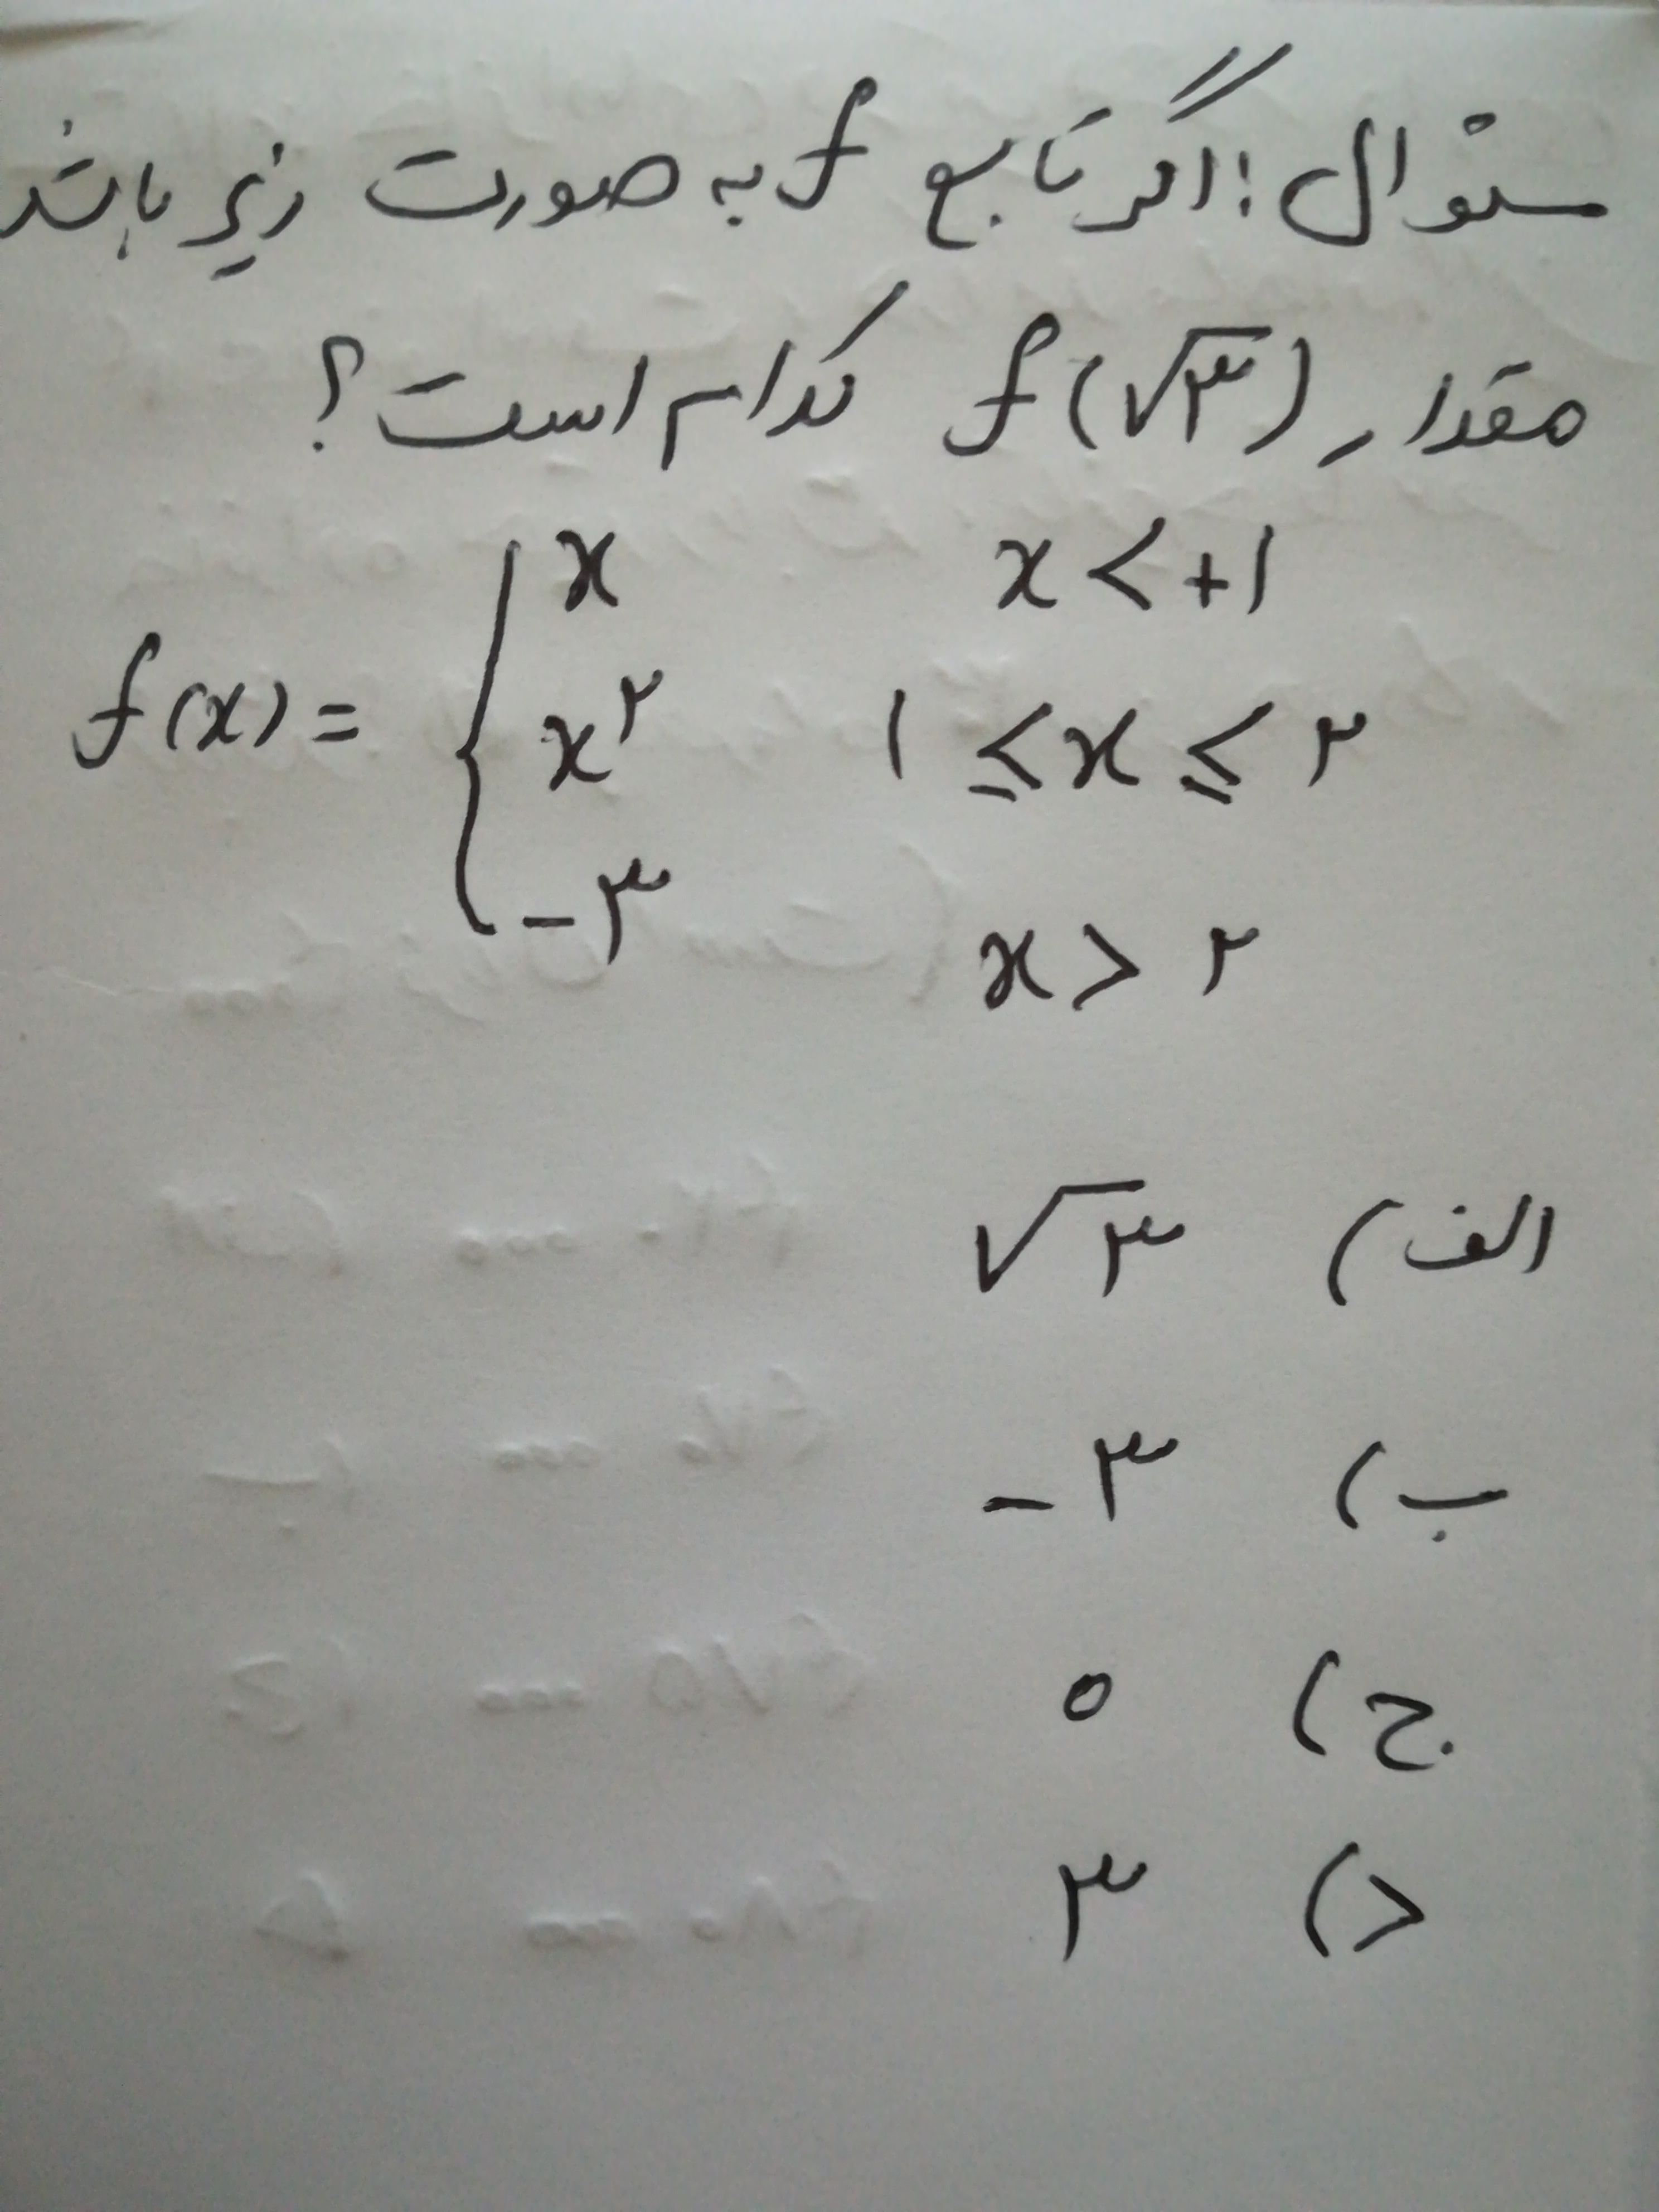 سئوال: اگر تابع f به صورت زیر باشد
مقدار f(√۳) کدام است؟
x x < +۱
f(x) = { x^۲ ۱ ≤ x ≤ ۲
-۳ x > ۲
الف) √۳
ب) -۳
ج) ۰
د) ۳